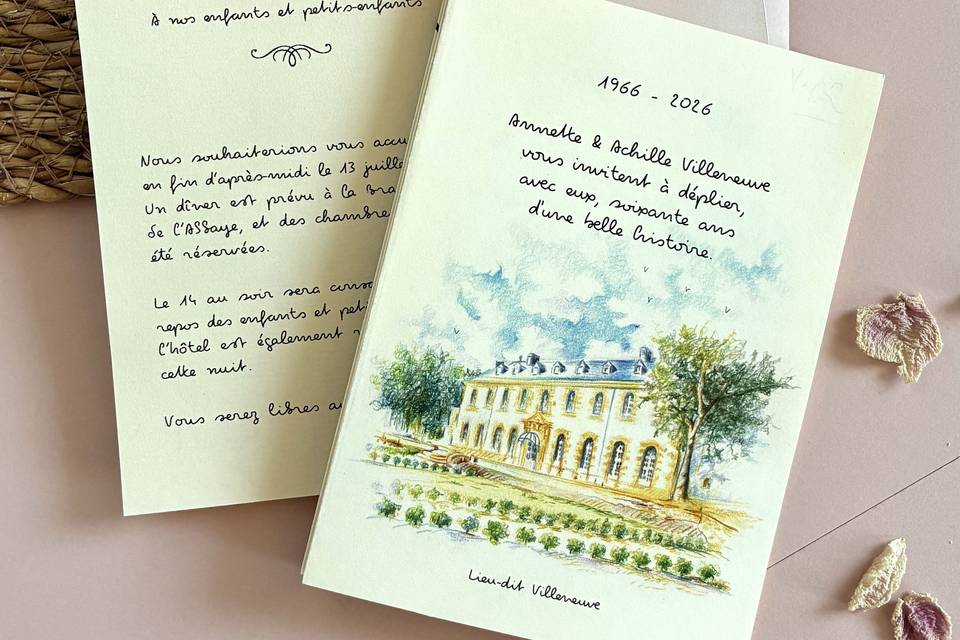 À nos enfants et petits-enfants
Nous souhaiterions vous
en fin d'après-midi le 13 juille
Un dîner est prévu à la
de l'Abbaye, et des chambre
été réservées.
Le 14 au soir sera
repos des enfants et
l'hôtel est également
cette nuit.
Vous serez libres
1966 - 2026
Annette & Achille Villeneuve
vous invitent à déplier,
avec eux, soixante ans
d'une belle histoire.
Lieu-dit Villeneuve